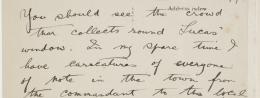 Address below
You should see the crowd
that collects round Lucas'
window. In my spare time I
have caricatures of everyone
of note in the town from
the commandant to the local